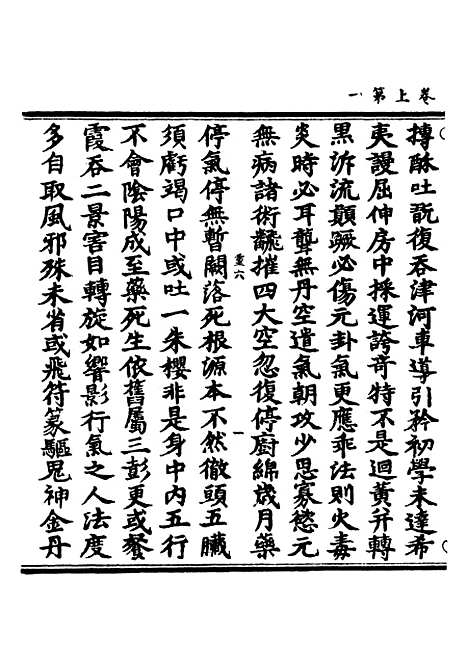 卷上第一
摶酥吐翫復吞津河車導引矜初學未達希
夷謾屈伸房中採運誇奇特不是迴黃并轉
黑泝流顛蹶必傷元卦氣更應乖法則火毒
炎時必耳聾無丹空遣氣朝攻少思寡慾元
無病諸術虀摧四大空忽復停廚綿歲月藥
重六
一
停氣停無暫闕落死根源本不然徹頭五臟
須虧竭口中或吐一朱櫻非是身中內五行
不會陰陽成至藥死生依舊屬三彭更或餐
霞吞二景害目轉旋如響影行氣之人法度
多自取風邪殊未省或飛符篆驅鬼神金丹